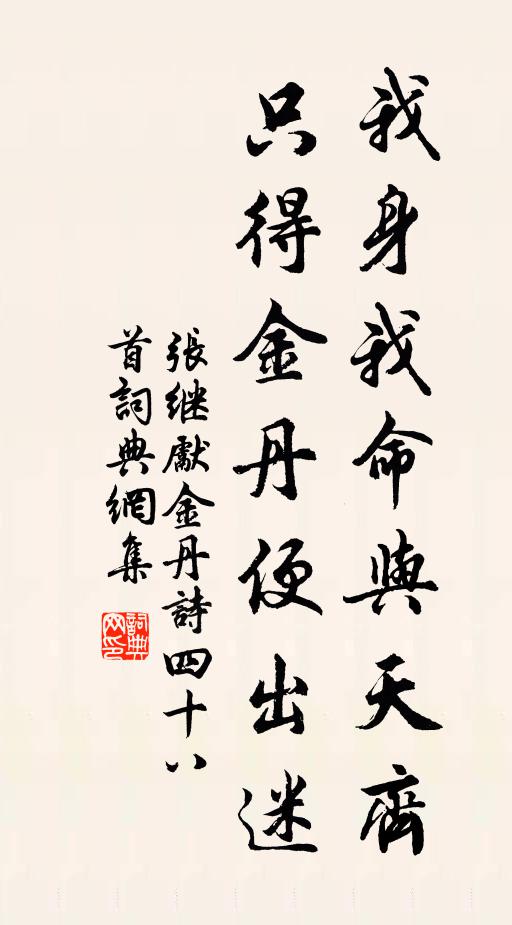 我身我命與天齊
只得金丹便出迷
張继獻金丹詩四十八
首詞典網集
詞典网印